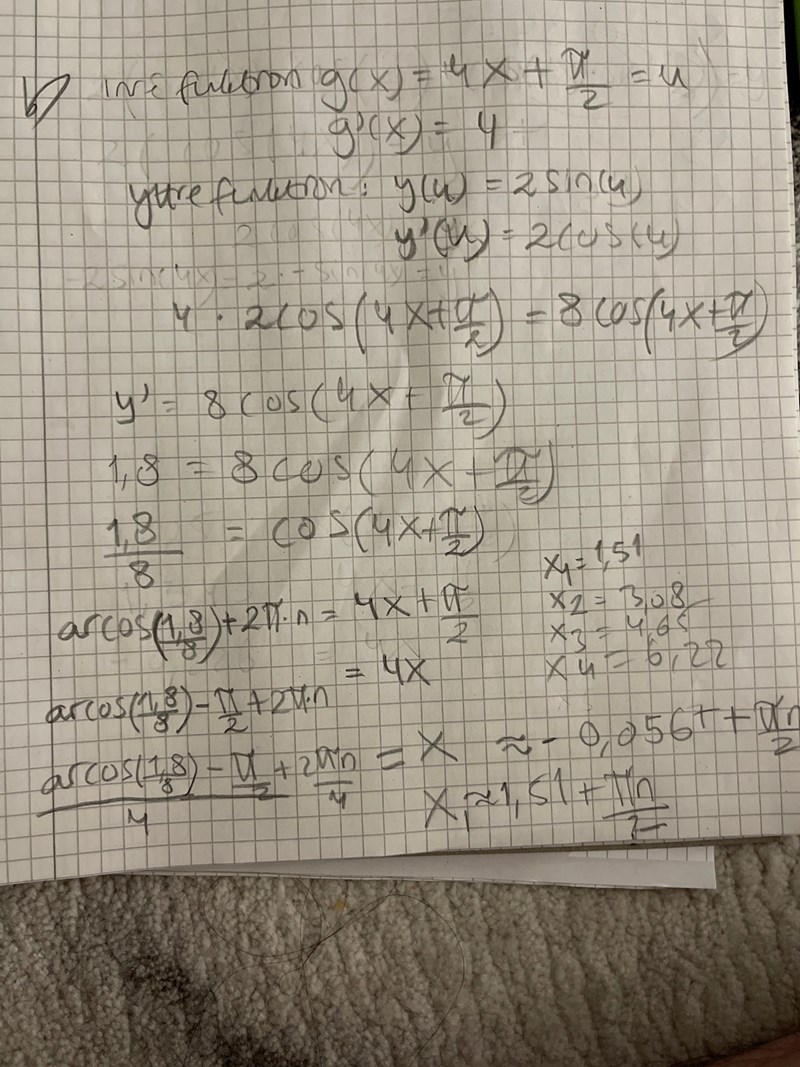 b) inre funktion g(x) = 4x + π/2 = u
g'(x) = 4
yttre funktion: y(u) = 2 sin(u)
y'(u) = 2cos(u)
4 · 2cos(4x+π/2) = 8 cos(4x+π/2)
y' = 8 cos(4x + π/2)
1,8 = 8 cos(4x + π/2)
1,8/8 = cos(4x+π/2)
x1 = 1,51
x2 = 3,08
x3 = 4,65
x4 = 6,22
arcos(1,8/8) + 2π·n = 4x + π/2
arcos(1,8/8) - π/2 + 2π·n = 4x
(arcos(1,8/8) - π/2)/4 + 2πn/4 = x ≈ - 0,056 + πn/2
x1 ≈ 1,51 + πn/2